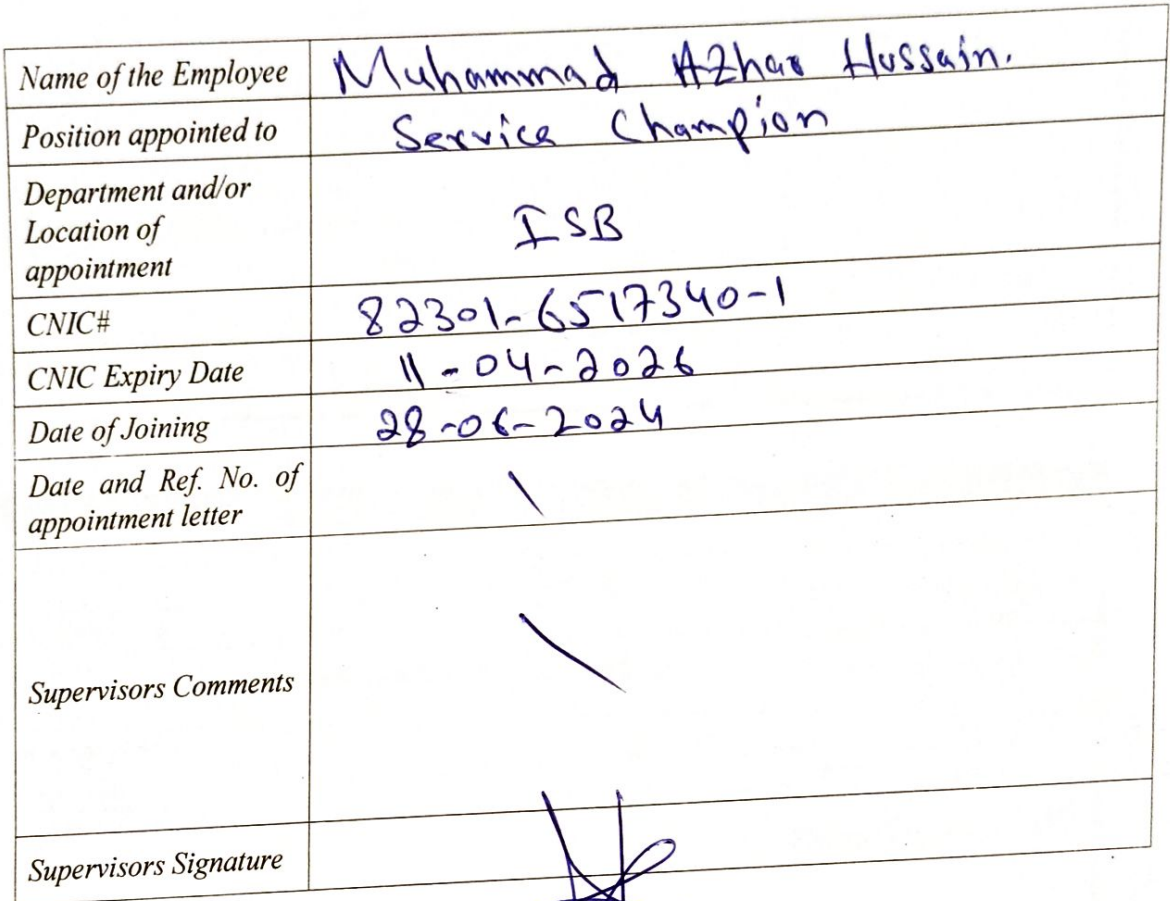 Name of the Employee Muhammad Azhar Hussain.
Position appointed to Service Champion
Department and/or
Location of
appointment
ISB
CNIC# 82301-6517340-1
CNIC Expiry Date 11-04-2026
Date of Joining 28-06-2024
Date and Ref. No. of
appointment letter
Supervisors Comments
Supervisors Signature